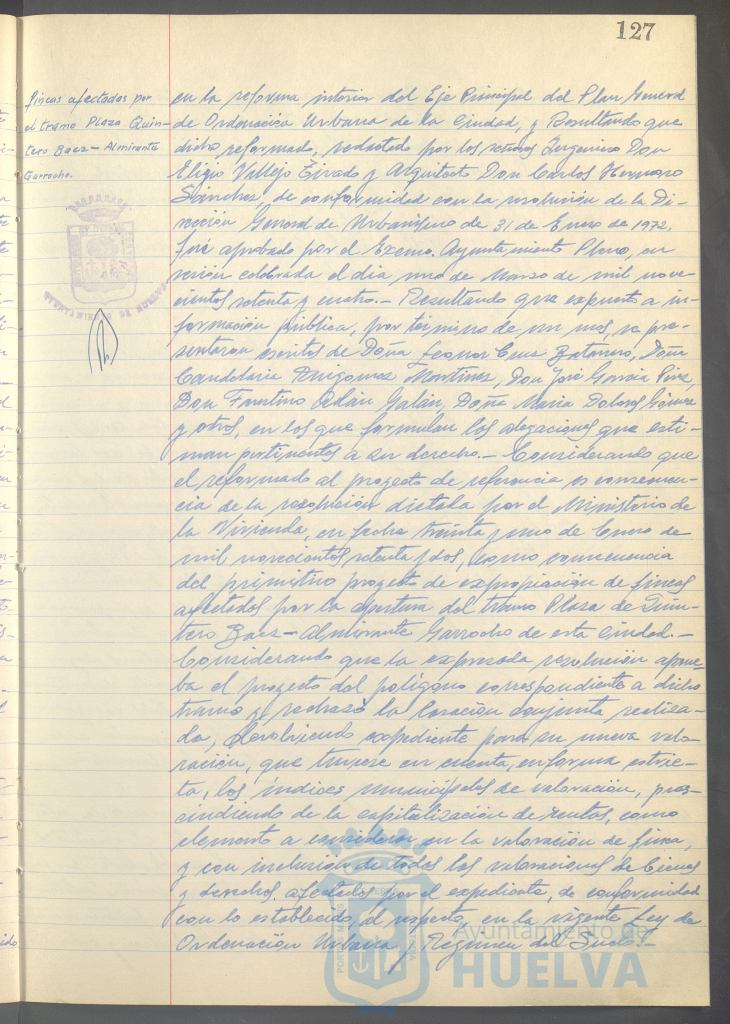 127
fincas afectadas por
el tramo Plaza Quin-
tero Baez - Almirante
Garrocho.
en la reforma interior del Eje Principal del Plan General
de Ordenación Urbana de la Ciudad, y Resultando que
dicho reformado, redactado por los señores Ingeniero Don
Eligio Vallejo Tirado y Arquitecto Don Carlos Hermoso
Sánchez, de conformidad con la resolución de la Di-
rección General de Urbanismo de 31 de Enero de 1972,
fué aprobado por el Excmo. Ayuntamiento Pleno, en
sesión celebrada el día uno de Marzo de mil nove-
cientos setenta y cuatro.- Resultando que expuesto a in-
formación pública, por término de un mes, se pre-
sentaron escritos de Doña Leonor Cruz Batanero, Doña
Candelaria Martínez, Don José García Pérez,
Don Faustino Adán Galán, Doña María Dolores Gómez
y otros, en los que formulan las alegaciones que esti-
man pertinentes a su derecho.- Considerando que
el reformado al proyecto de referencia es consecuen-
cia de la resolución dictada por el Ministerio de
la Vivienda, en fecha treinta y uno de Enero de
mil novecientos setenta y dos, como consecuencia
del primitivo proyecto de expropiación de fincas
afectadas por la apertura del tramo Plaza de Quin-
tero Baez - Almirante Garrocho de esta Ciudad.-
Considerando que la expresada resolución aprue-
ba el proyecto del polígono correspondiente a dicho
tramo y rechazó la tasación conjunta realiza-
da, devolviendo expediente para su nueva valo-
ración, que tuviese en cuenta, en forma estric-
ta, los índices municipales de valoración, pres-
cindiendo de la capitalización de rentas, como
elemento a considerar en la valoración de finca,
y con inclusión de todas las valoraciones de bienes
y derechos afectados por el expediente, de conformidad
con lo establecido, al respecto, en la vigente Ley de
Ordenación Urbana y Régimen del Suelo.-
Ayuntamiento de
HUELVA